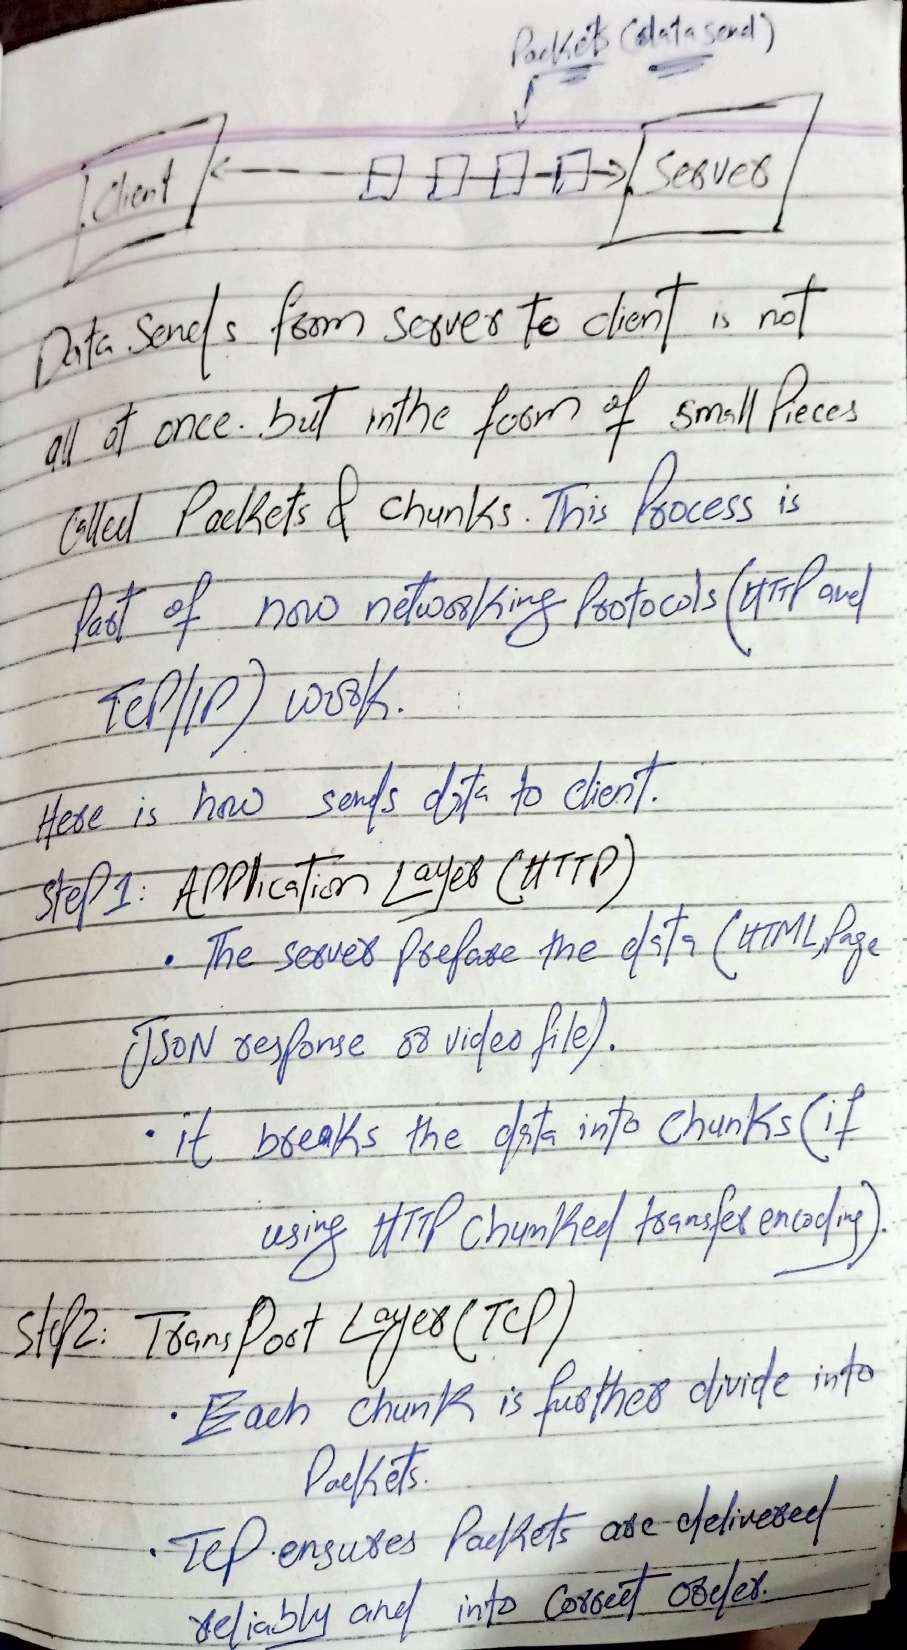 Packets (data send)
Client
Server
Data Sends from server to client is not
all at once. but in the form of small Pieces
Called Packets & chunks. This Process is
Part of how networking Protocols (HTTP and
TCP/IP) work.
Here is how sends data to client.
Step 1: Application Layer (HTTP)
• The server prepare the data (HTML, Page
JSON response or video file).
• it breaks the data into chunks (if
using HTTP Chunked transfer encoding).
Step 2: TransPort Layer (TCP)
• Each chunk is further divide into
Packets.
• TCP ensures Packets are delivered
reliably and into correct order.